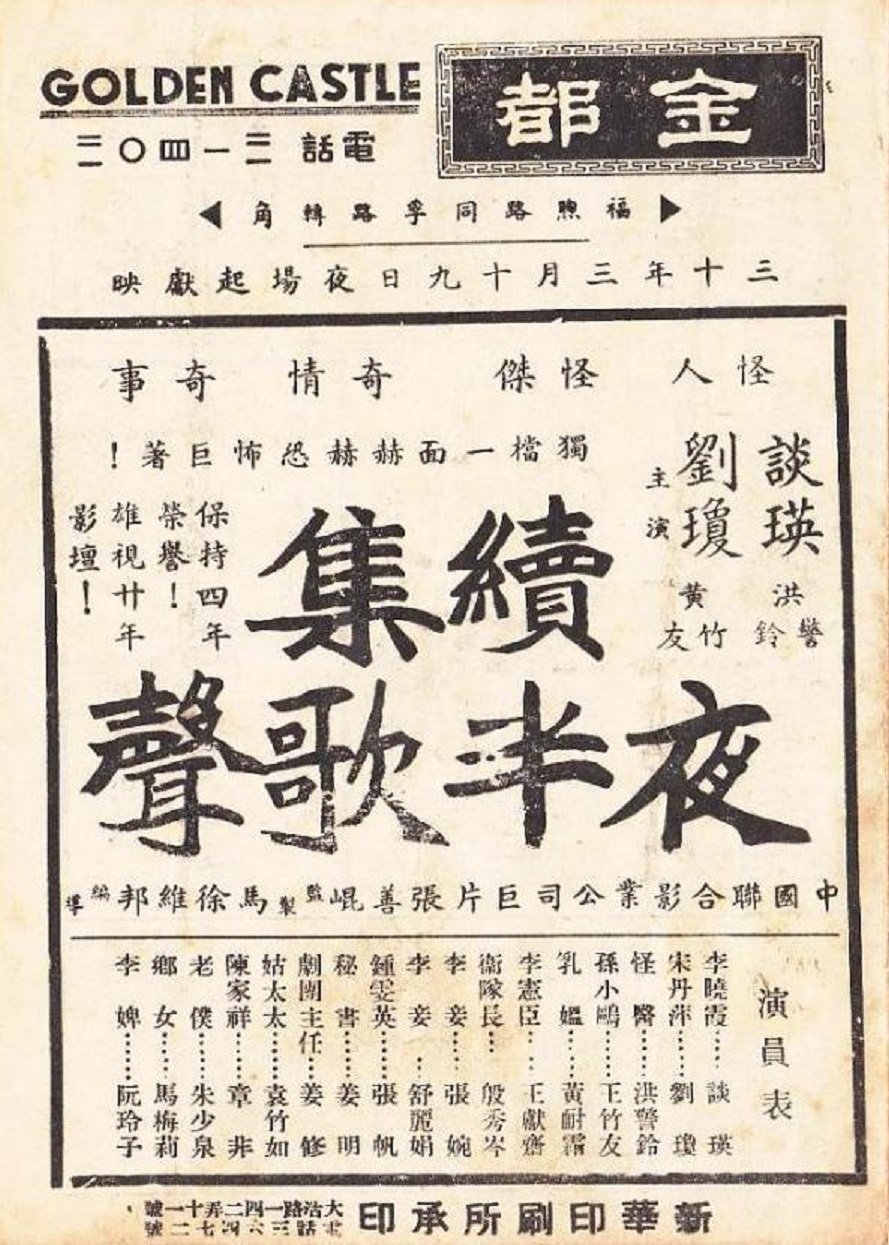 金都
GOLDEN CASTLE
電話 三一四〇三
福煦路同孚路轉角
三十年三月十九日夜場起獻映
怪人 怪傑 奇情 奇事
獨檔一面赫赫恐怖巨著！
談瑛
劉瓊
主演
洪警鈴
黃竹友
續集
夜半歌聲
保持四年
榮譽！
雄視廿年
影壇！
中國聯合影業公司巨片張善崐監製馬徐維邦編導
演員表
李曉霞……談瑛
宋丹萍……劉瓊
怪醫……洪警鈴
孫小鷗……王竹友
乳媼……黃耐霜
李憲臣……王獻齋
衞隊長……殷秀岑
李妾……張婉
李妾……舒麗娟
鍾雯英……張帆
秘書……姜明
劇團主任……姜修
姑太太……袁竹如
陳家祥……章非
老僕……朱少泉
鄉女……馬梅莉
李婢……阮玲子
新華印刷所承印
大沽路一四二弄十一號
電話三六四七二號